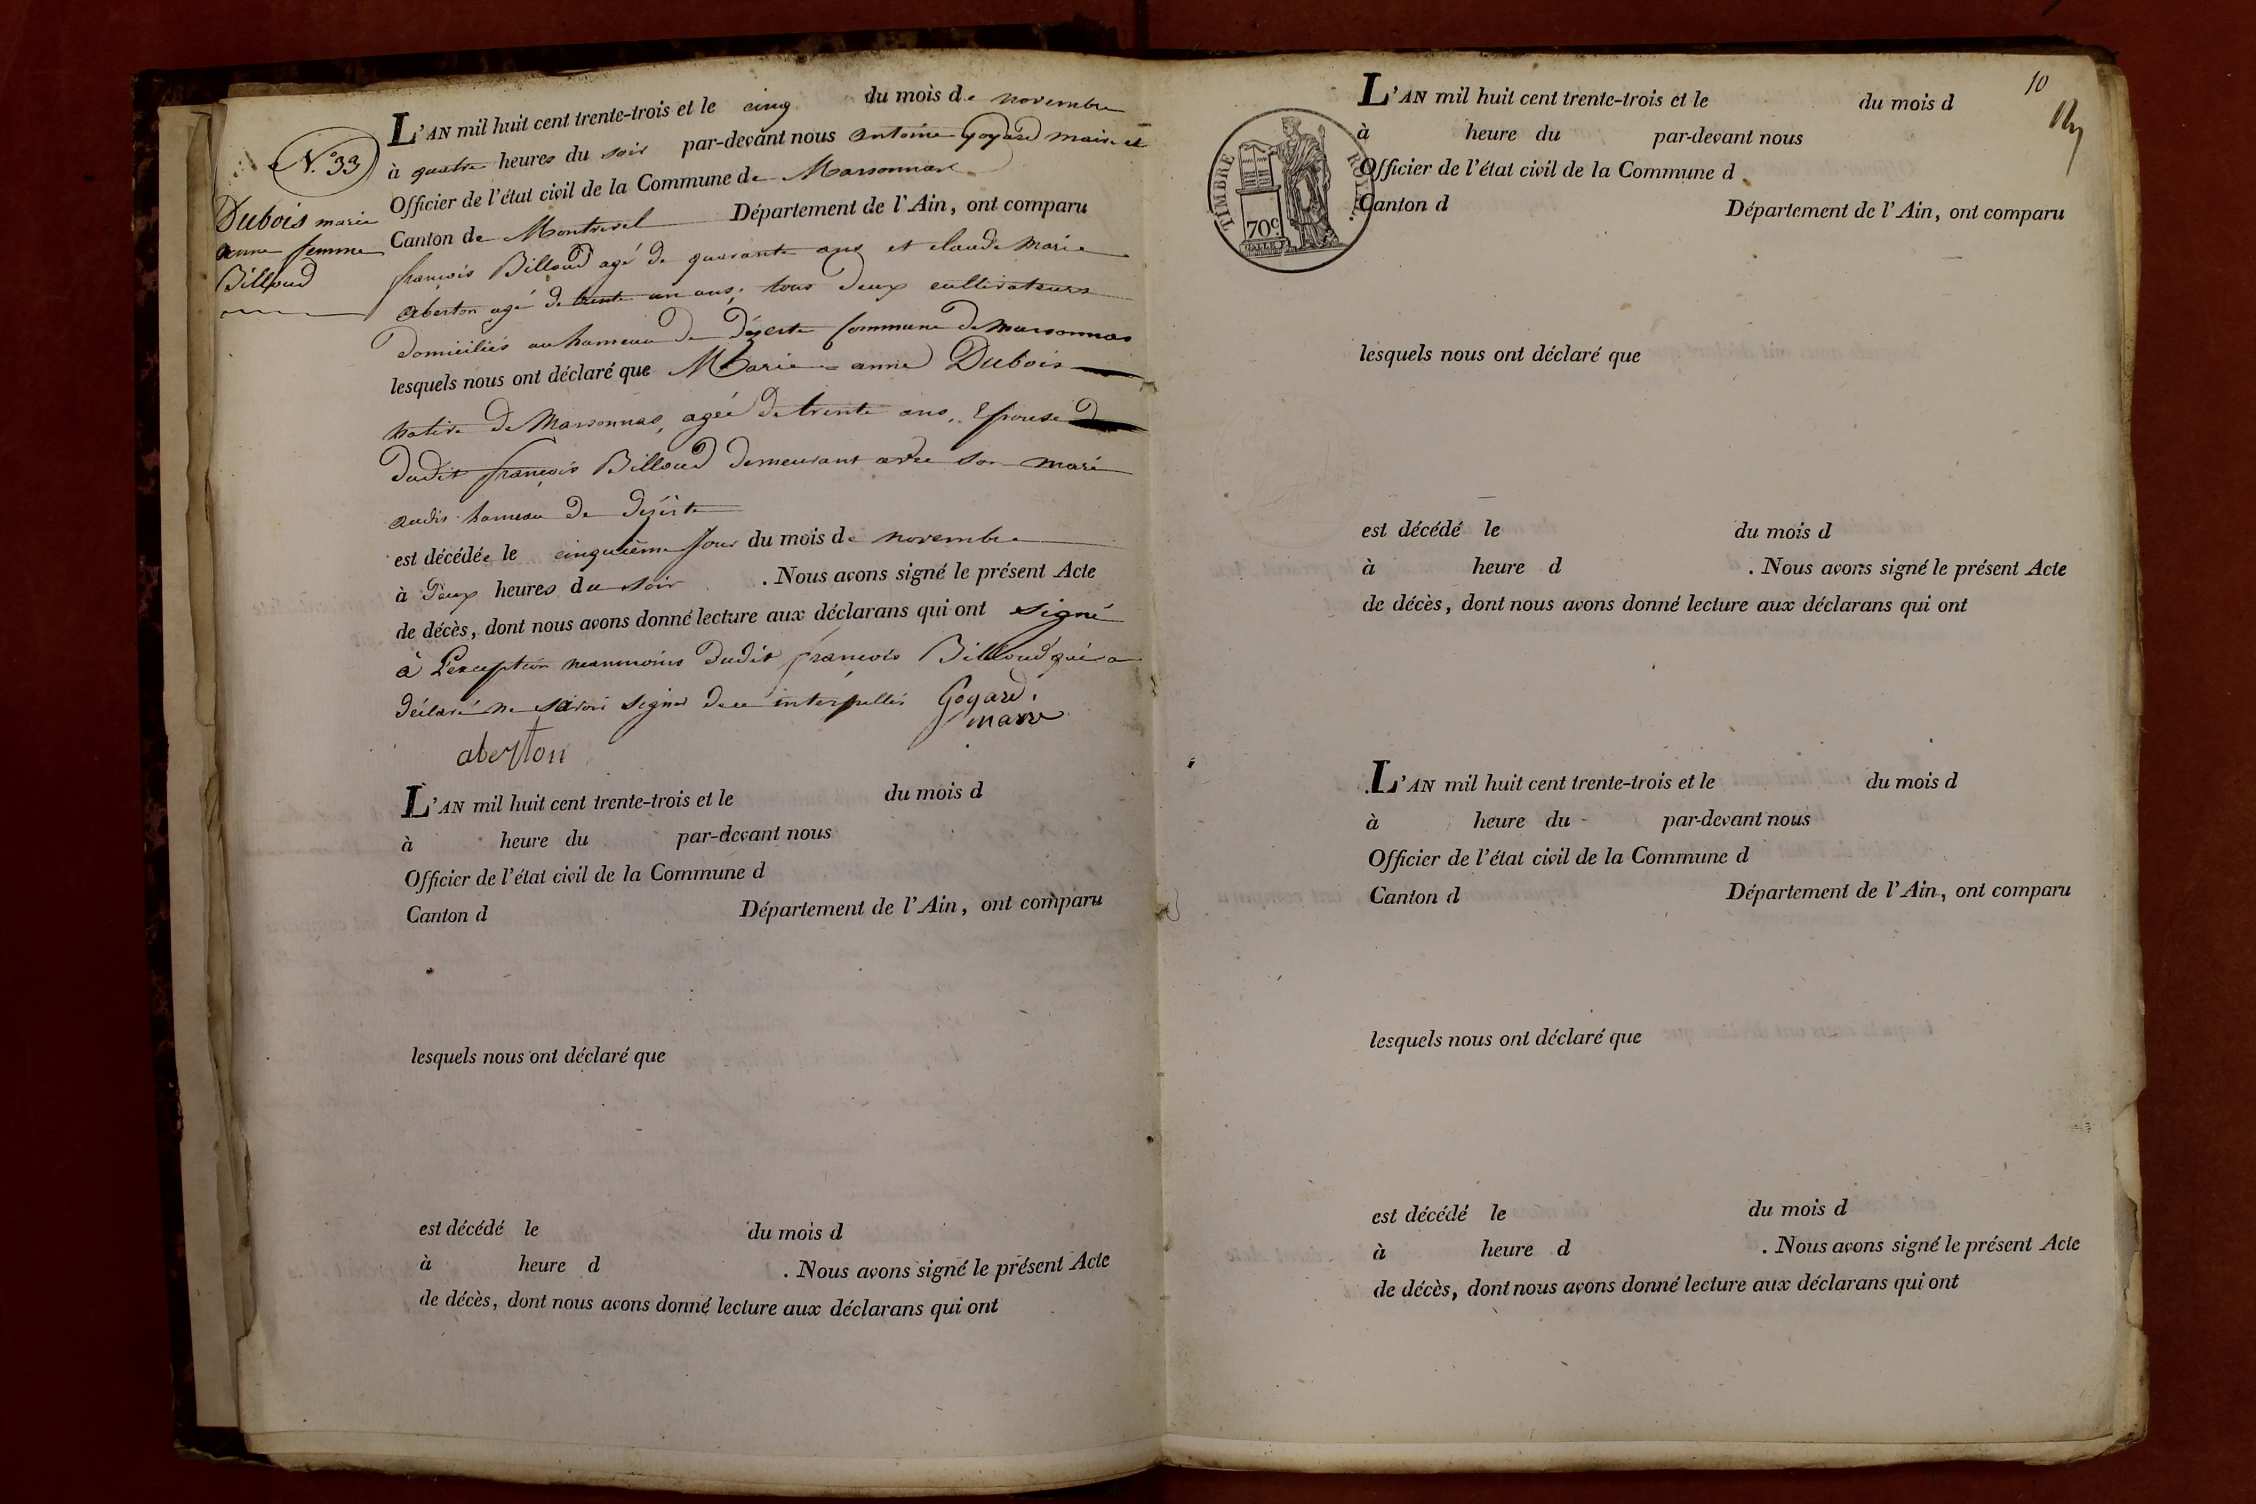 N.° 33
Dubois marie
anne femme
Billoud
L'AN mil huit cent trente-trois et le cinq du mois de novembre
à quatre heures du soir par-devant nous antoine Goyard maire et
Officier de l'état civil de la Commune de Marsonnas
Canton de Montrevel Département de l'Ain, ont comparu
françois Billoud agé de quarante ans et claude Marie
aberton agé de trente un ans, tous deux cultivateurs
domiciliés au hameau de déserte commune de Marsonnas
lesquels nous ont déclaré que Marie-anne Dubois
native de Marsonnas, agée de trente ans, Epouse
dudit françois Billoud demeurant avec son mari
audit hameau de déserte
est décédée le cinquième jour du mois de novembre
à deux heures du soir . Nous avons signé le présent Acte
de décès, dont nous avons donné lecture aux déclarans qui ont signé
à l'exception néanmoins dudit françois Billoud qui a
déclaré ne savoir signer de ce interpellé Goyard
maire
aberton
L'AN mil huit cent trente-trois et le du mois d
à heure du par-devant nous
Officier de l'état civil de la Commune d
Canton d Département de l'Ain, ont comparu
lesquels nous ont déclaré que
est décédé le du mois d
à heure d . Nous avons signé le présent Acte
de décès, dont nous avons donné lecture aux déclarans qui ont
10
TIMBRE ROYAL.
70c.
L'AN mil huit cent trente-trois et le du mois d
à heure du par-devant nous
Officier de l'état civil de la Commune d
Canton d Département de l'Ain, ont comparu
lesquels nous ont déclaré que
est décédé le du mois d
à heure d . Nous avons signé le présent Acte
de décès, dont nous avons donné lecture aux déclarans qui ont
L'AN mil huit cent trente-trois et le du mois d
à heure du par-devant nous
Officier de l'état civil de la Commune d
Canton d Département de l'Ain, ont comparu
lesquels nous ont déclaré que
est décédé le du mois d
à heure d . Nous avons signé le présent Acte
de décès, dont nous avons donné lecture aux déclarans qui ont